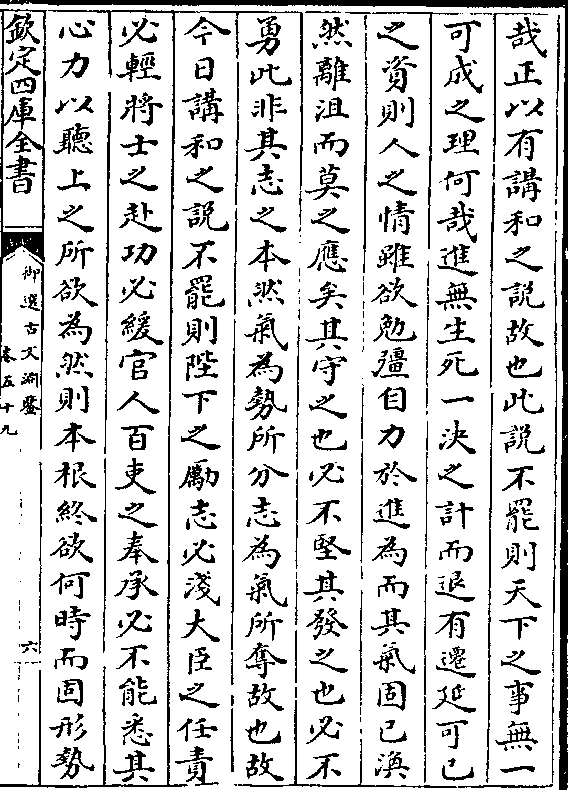 哉正以有講和之説故也此說不罷則天下之事無一
可成之理何哉進無生死一決之計而退有遷延可已
之資則人之情雖欲勉彊自力於進為而其氣固已渙
然離沮而莫之應矣其守之也必不堅其發之也必不
勇此非其志之本然氣為勢所分志為氣所奪故也故
今日講和之說不罷則陛下之勵志必淺大臣之任責
必輕將士之赴功必緩官人百吏之奉承必不能悉其
心力以聽上之所欲為然則本根終欲何時而固形勢
欽定四庫全書
御選古文淵鑒
卷五十九
六